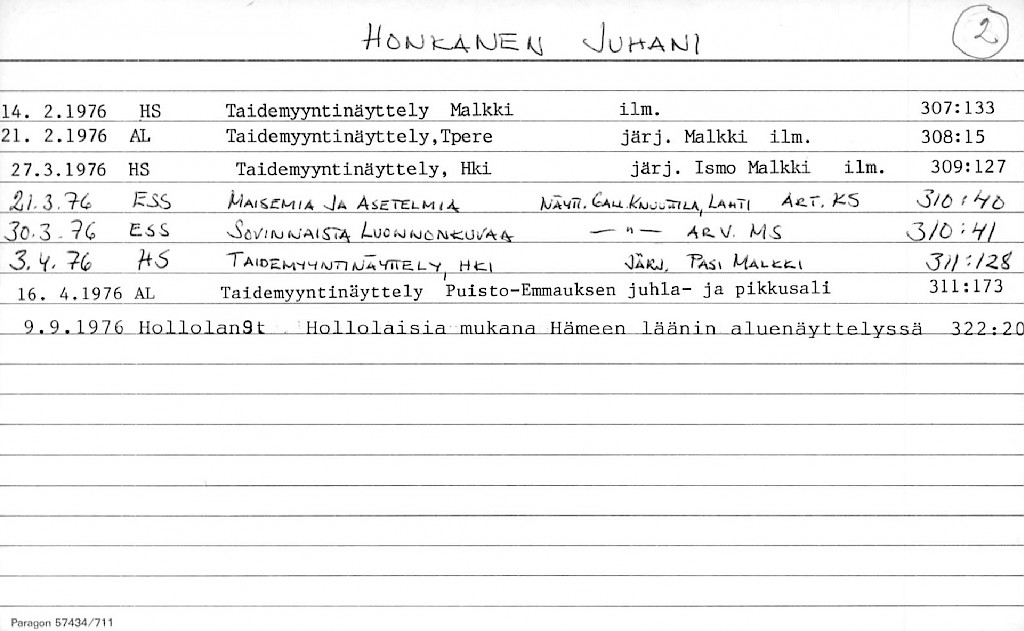 HONKANEN JUHANI 2
14. 2.1976 HS Taidemyyntinäyttely Malkki ilm. 307:133
21. 2.1976 AL Taidemyyntinäyttely,Tpere järj. Malkki ilm. 308:15
27.3.1976 HS Taidemyyntinäyttely, Hki järj. Ismo Malkki ilm. 309:127
21.3.76 ESS MAISEMIA JA ASETELMIA NÄYTT. GALL.KNUUTTILA, LAHTI ART. KS 310:40
30.3.76 ESS SOVINNAISTA LUONNONKUVAA —"— ARV. MS 310:41
3.4.76 HS TAIDEMYYNTINÄYTTELY, HKI JÄRJ. PASI MALKKI 311:128
16. 4.1976 AL Taidemyyntinäyttely Puisto-Emmauksen juhla- ja pikkusali 311:173
9.9.1976 Hollolan St Hollolaisia mukana Hämeen läänin aluenäyttelyssä 322:20
Paragon 57434/711